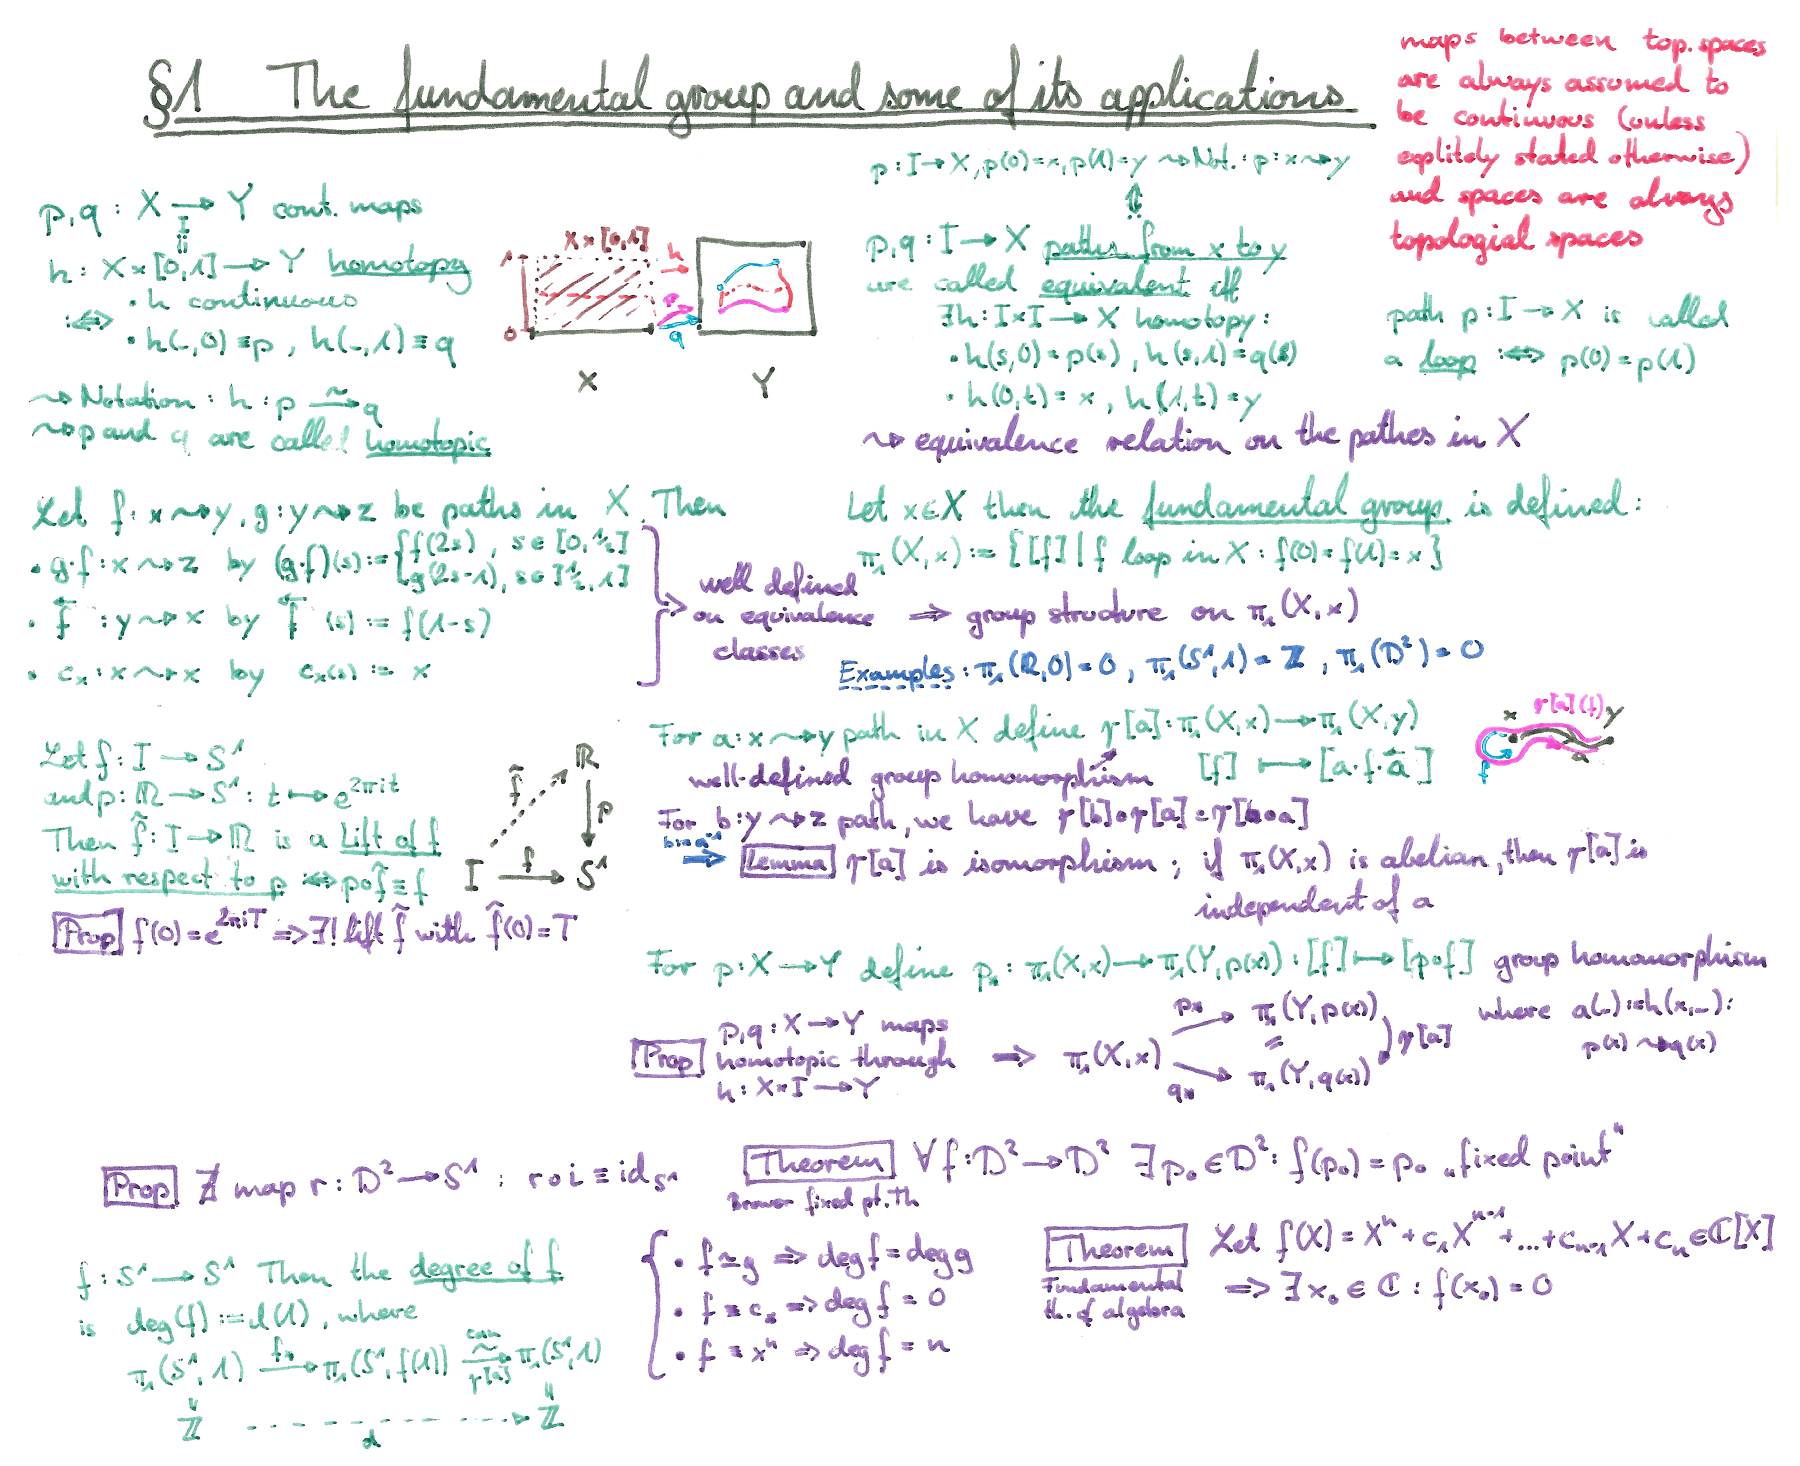 §1 The fundamental group and some of its applications
maps between top. spaces
are always assumed to
be continuous (unless
explitely stated otherwise)
and spaces are always
topologial spaces
p,q : X → Y cont. maps
I
=
h : X × [0,1] → Y homotopy
:⇔
• h continuous
• h(_,0) ≡ p , h(_,1) ≡ q
⇝ Notation : h : p ⥲ q
⇝ p and q are called homotopic
X × [0,1]
1
0
h
p
q
X
Y
p : I → X, p(0)=x, p(1)=y ⇝ Not. : p : x ⇝ y
⇕
p,q : I → X paths from x to y
are called equivalent iff
∃h : I×I → X homotopy :
• h(s,0) = p(s) , h(s,1) = q(s)
• h(0,t) = x , h(1,t) = y
⇝ equivalence relation on the pathes in X
path p : I → X is called
a loop :⇔ p(0) = p(1)
Let f : x ⇝ y, g : y ⇝ z be paths in X. Then
• g·f : x ⇝ z by (g·f)(s) := { f(2s) , s ∈ [0,1/2]
g(2s-1), s ∈ ]1/2,1]
• f⃖ : y ⇝ x by f⃖ (s) := f(1-s)
• cₓ : x ⇝ x by cₓ(s) := x
well defined
on equivalence
classes
Let x∈X then the fundamental group is defined :
π₁(X,x) := {[f] | f loop in X : f(0) = f(1) = x}
⇒ group structure on π₁(X,x)
Examples : π₁(ℝ,0) = 0 , π₁(S¹,1) = ℤ , π₁(D²) = 0
Let f : I → S¹
and p : ℝ → S¹ : t ↦ e^{2πit}
Then f̃ : I → ℝ is a Lift of f
with respect to p :⇔ p∘f̃ ≡ f
Prop f(0) = e^{2πiT} ⇒ ∃! lift f̃ with f̃(0) = T
f̃
ℝ
p
I
f
S¹
For a : x ⇝ y path in X define γ[a] : π₁(X,x) → π₁(X,y)
well-defined group homomorphism
[f] ↦ [a·f·a⃖]
x
γ[a](f)
y
f
a
For b : y ⇝ z path, we have γ[b]∘γ[a] = γ[b∘a]
b = a⁻¹
⇒
Lemma γ[a] is isomorphism ; if π₁(X,x) is abelian, then γ[a] is
independent of a
For p : X → Y define p∗ : π₁(X,x) → π₁(Y,p(x)) : [f] ↦ [p∘f] group homomorphism
Prop
p,q : X → Y maps
homotopic through
h : X×I → Y
⇒ π₁(X,x)
p∗
π₁(Y,p(x))
≅
γ[a]
q∗
π₁(Y,q(x))
where a(_) := h(x,_) :
p(x) ⇝ q(x)
Prop ∄ map r : D² → S¹ : r∘i ≡ id_{S¹}
Theorem ∀ f : D² → D² ∃ p₀ ∈ D² : f(p₀) = p₀ „fixed point"
Brower fixed pt. Th
f : S¹ → S¹ Then the degree of f
is deg(f) := d(1), where
π₁(S¹,1) →f∗ π₁(S¹,f(1)) can ⥲ γ[a] π₁(S¹,1)
ℤ
d
ℤ
• f ≃ g ⇒ deg f = deg g
• f ≡ cₓ ⇒ deg f = 0
• f ≡ xⁿ ⇒ deg f = n
Theorem Let f(X) = Xⁿ + c₁Xⁿ⁻¹ + ... + cₙ₋₁X + cₙ ∈ ℂ[X]
Fundamental
th. of algebra
⇒ ∃ x₀ ∈ ℂ : f(x₀) = 0